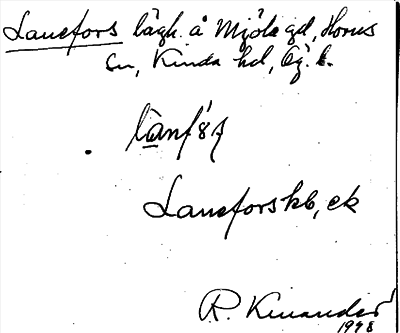 Lanefors lägh. å Mjöla gd, Horns
sn, Kinda hd, Ög. l.
Laneforskb, ek
R. Kinander
1948